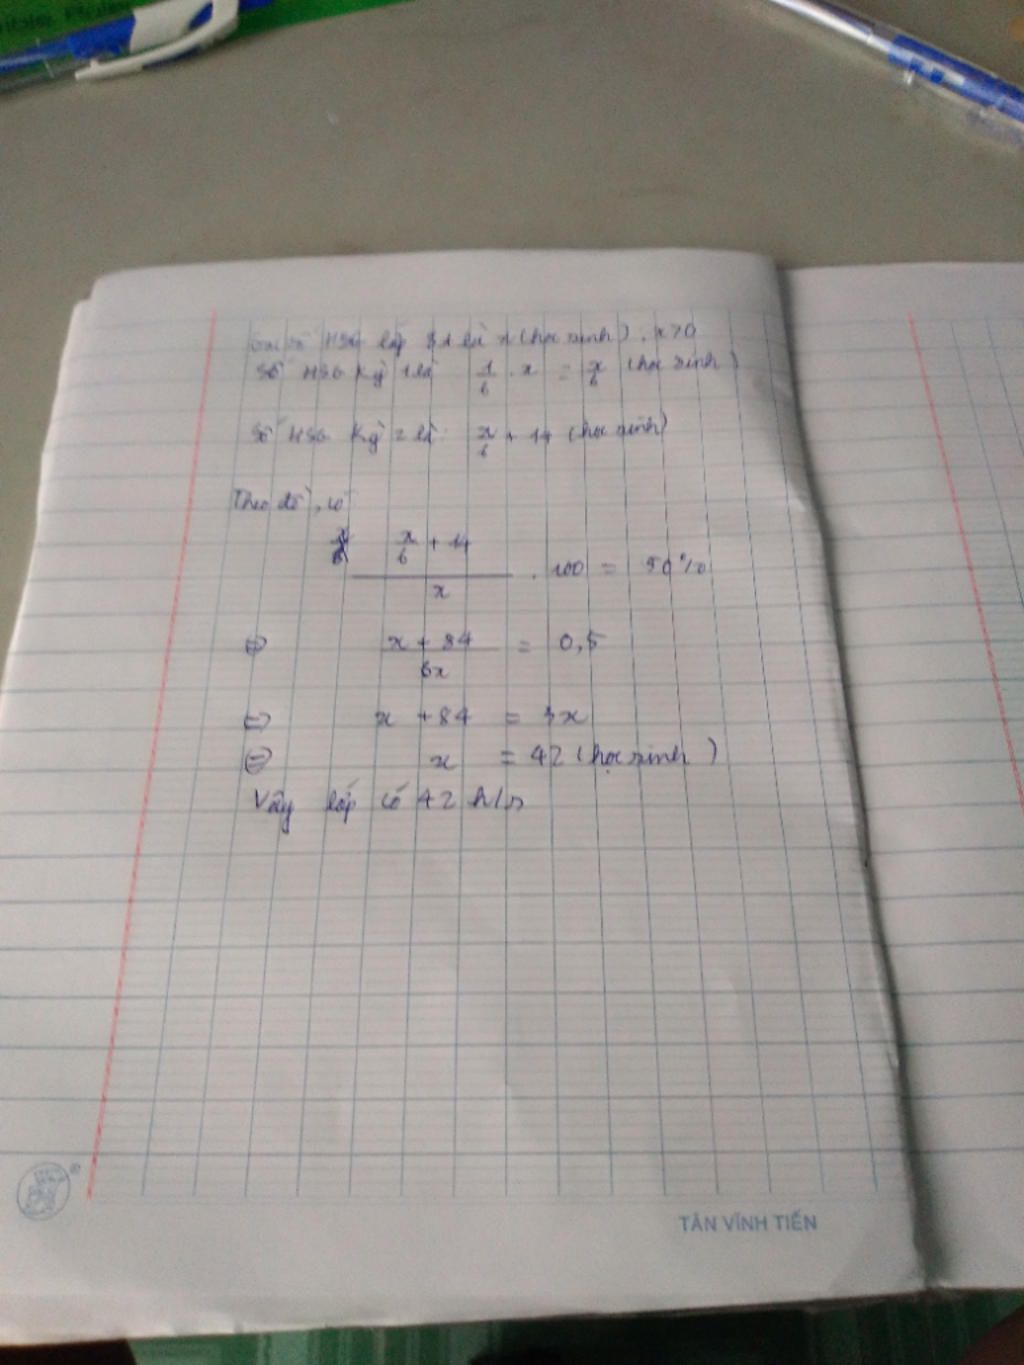 số HSG lớp 8A là x (học sinh), x>0
Số HSG Kỳ 1 là 1/6 . x = x/6 (học sinh)
Số HSG Kỳ 2 là: x/6 + 14 (học sinh)
Theo đề, có
x/6 + 14
/ x . 100 = 50%
⇔ x + 84 / 6x = 0,5
⇔ x + 84 = 3x
⇔ x = 42 (học sinh)
Vậy lớp có 42 h/s
TÂN VĨNH TIẾN